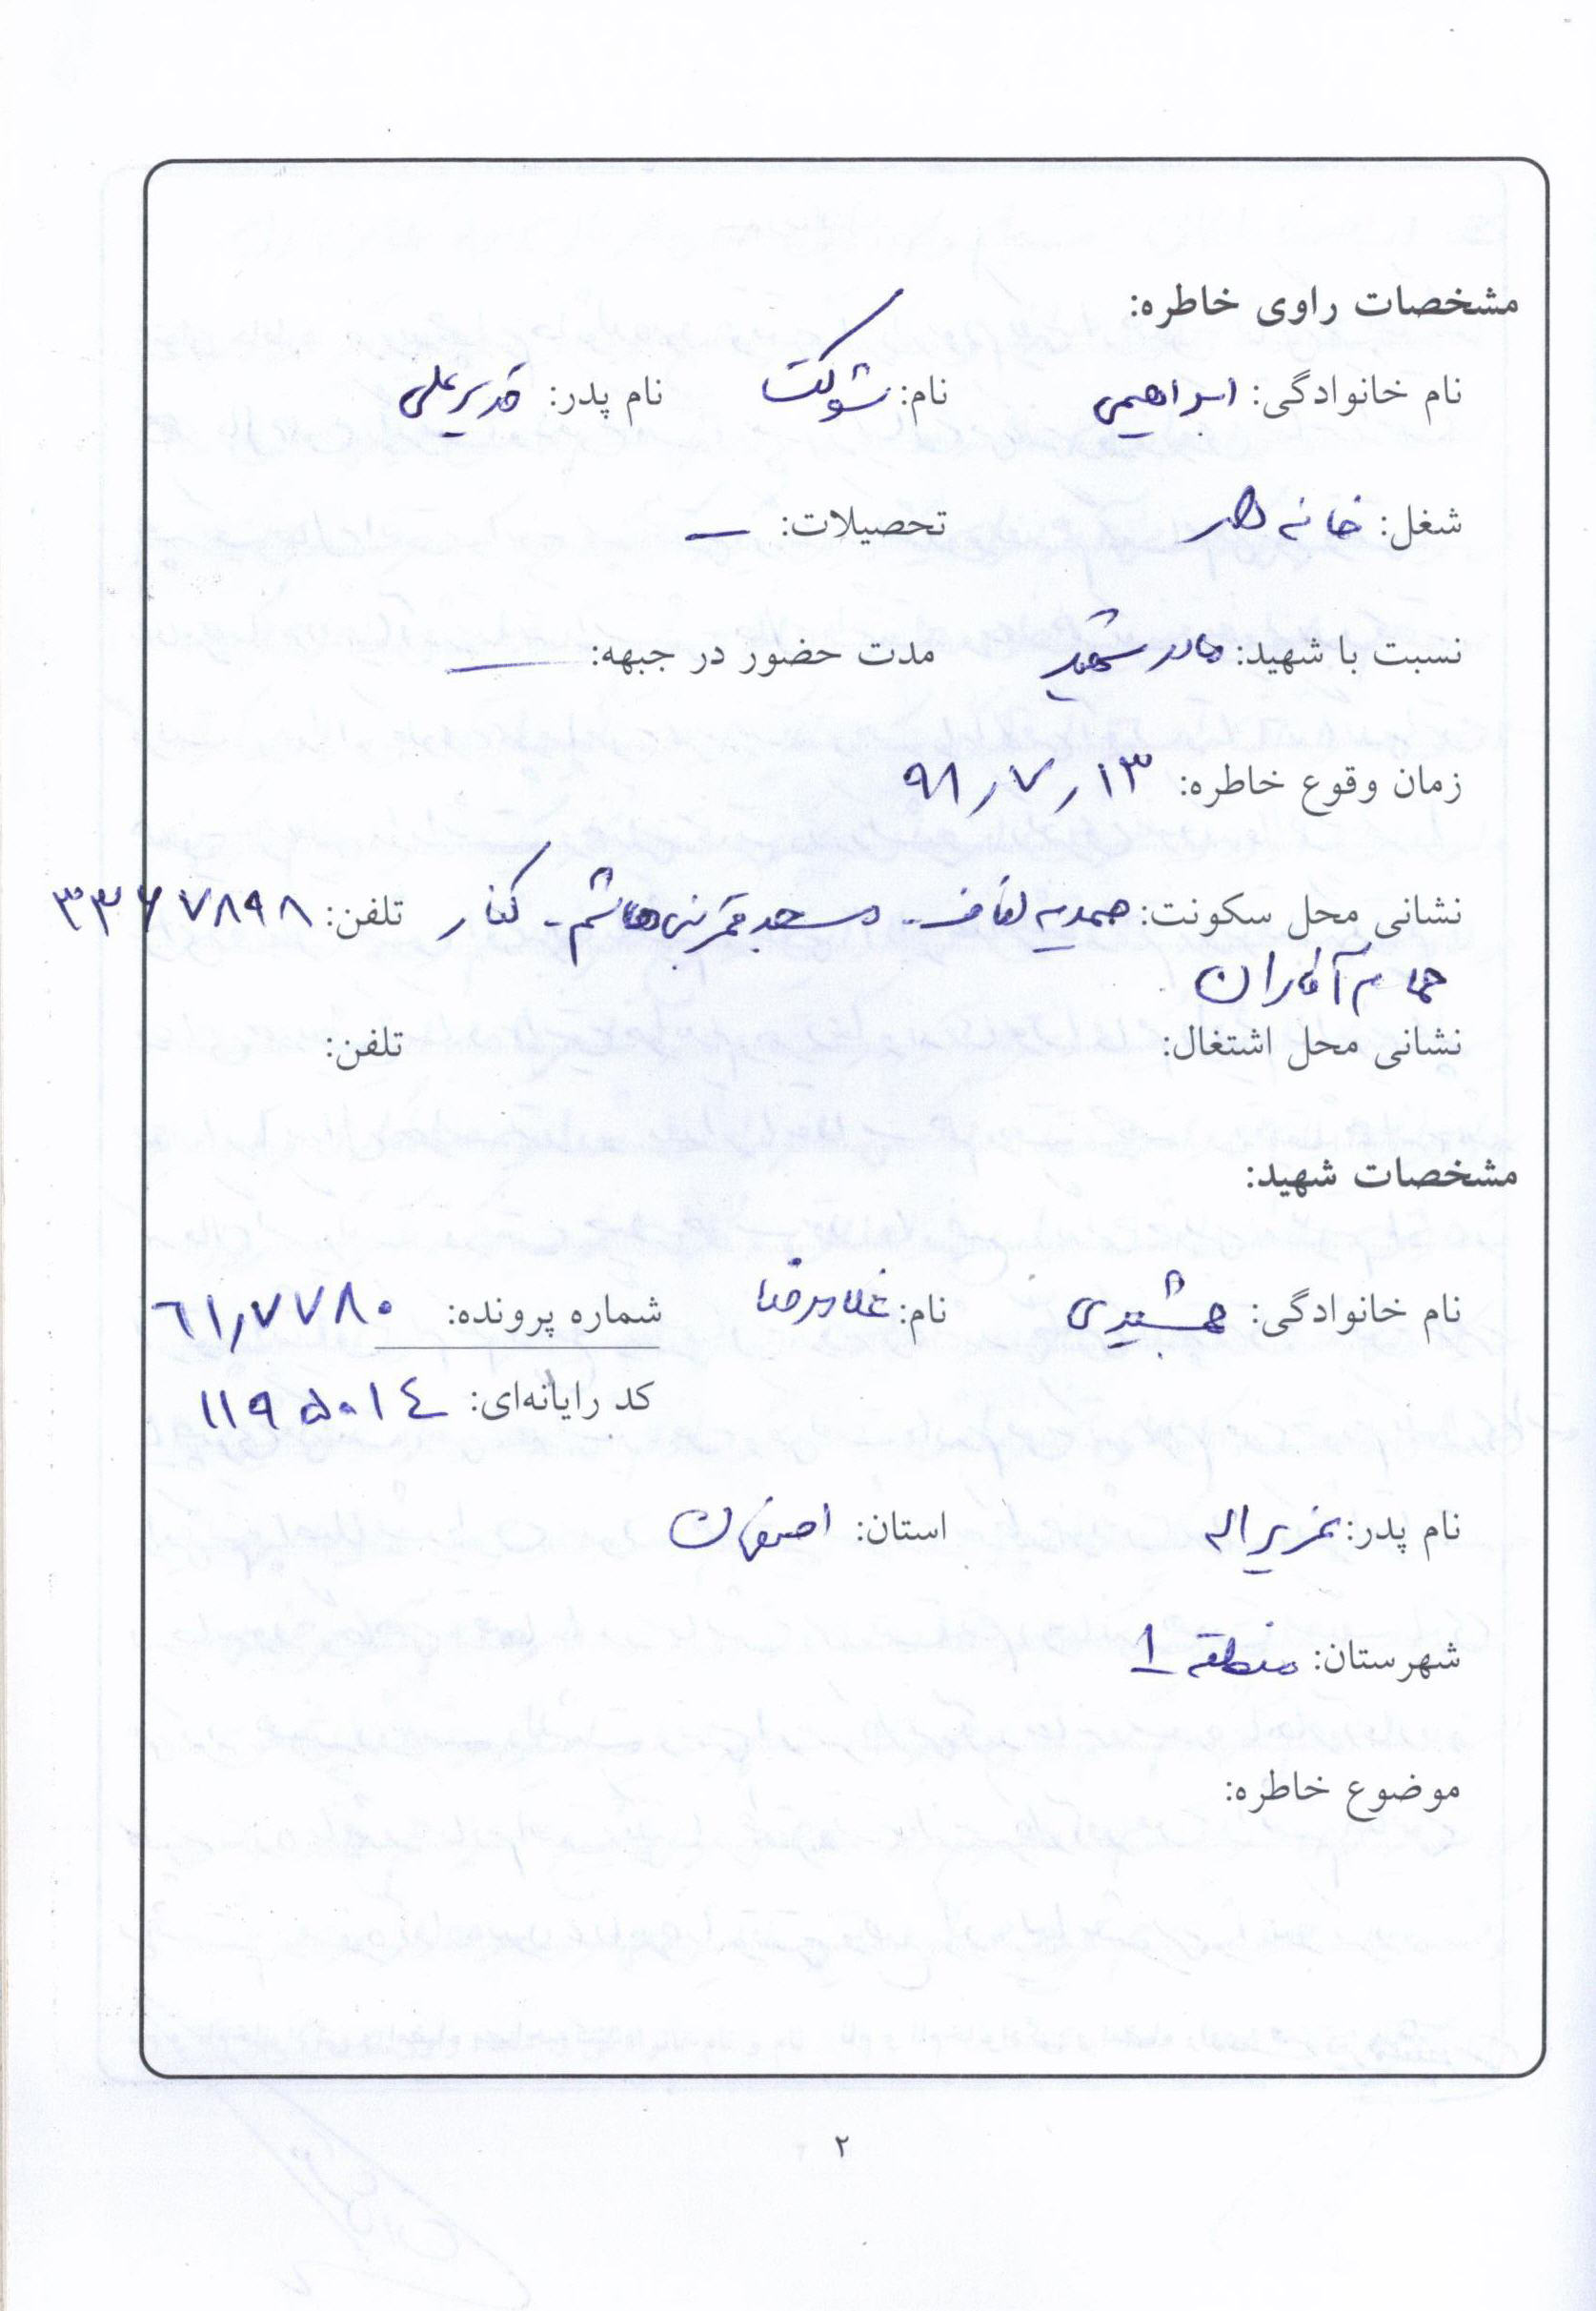 مشخصات راوی خاطره:
نام خانوادگی: ابراهیمی نام: شوکت نام پدر: قدیرعلی
شغل: خانه دار تحصیلات: —
نسبت با شهید: مادر شهید مدت حضور در جبهه: —
زمان وقوع خاطره: ۹۸/۷/۱۳
نشانی محل سکونت: مسجد قمر بنی هاشم - کنار تلفن: ۳۳۶۷۸۹۸
حمام
نشانی محل اشتغال: تلفن:
مشخصات شهید:
نام خانوادگی: جمشیدی نام: غلامرضا شماره پرونده: ۶۱/۷۷۸۰
کد رایانه‌ای: ۱۱۹۵۰۱۴
نام پدر: استان: اصفهان
شهرستان: منطقه ۱
موضوع خاطره:
۲